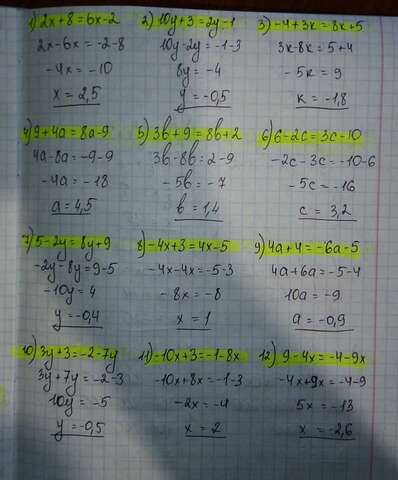 1) 2x+8=6x-2
2x-6x=-2-8
-4x=-10
x=2,5
2) 10y+3=2y-1
10y-2y=-1-3
8y=-4
y=-0,5
3) -4+3k=8k+5
3k-8k=5+4
-5k=9
k=-1,8
4) 9+4a=8a-9
4a-8a=-9-9
-4a=-18
a=4,5
5) 3b+9=8b+2
3b-8b=2-9
-5b=-7
b=1,4
6) 6-2c=3c-10
-2c-3c=-10-6
-5c=-16
c=3,2
7) 5-2y=8y+9
-2y-8y=9-5
-10y=4
y=-0,4
8) -4x+3=4x-5
-4x-4x=-5-3
-8x=-8
x=1
9) 4a+4=-6a-5
4a+6a=-5-4
10a=-9
a=-0,9
10) 3y+3=-2-7y
3y+7y=-2-3
10y=-5
y=-0,5
11) -10x+3=-1-8x
-10x+8x=-1-3
-2x=-4
x=2
12) 9-4x=-4-9x
-4x+9x=-4-9
5x=-13
x=-2,6